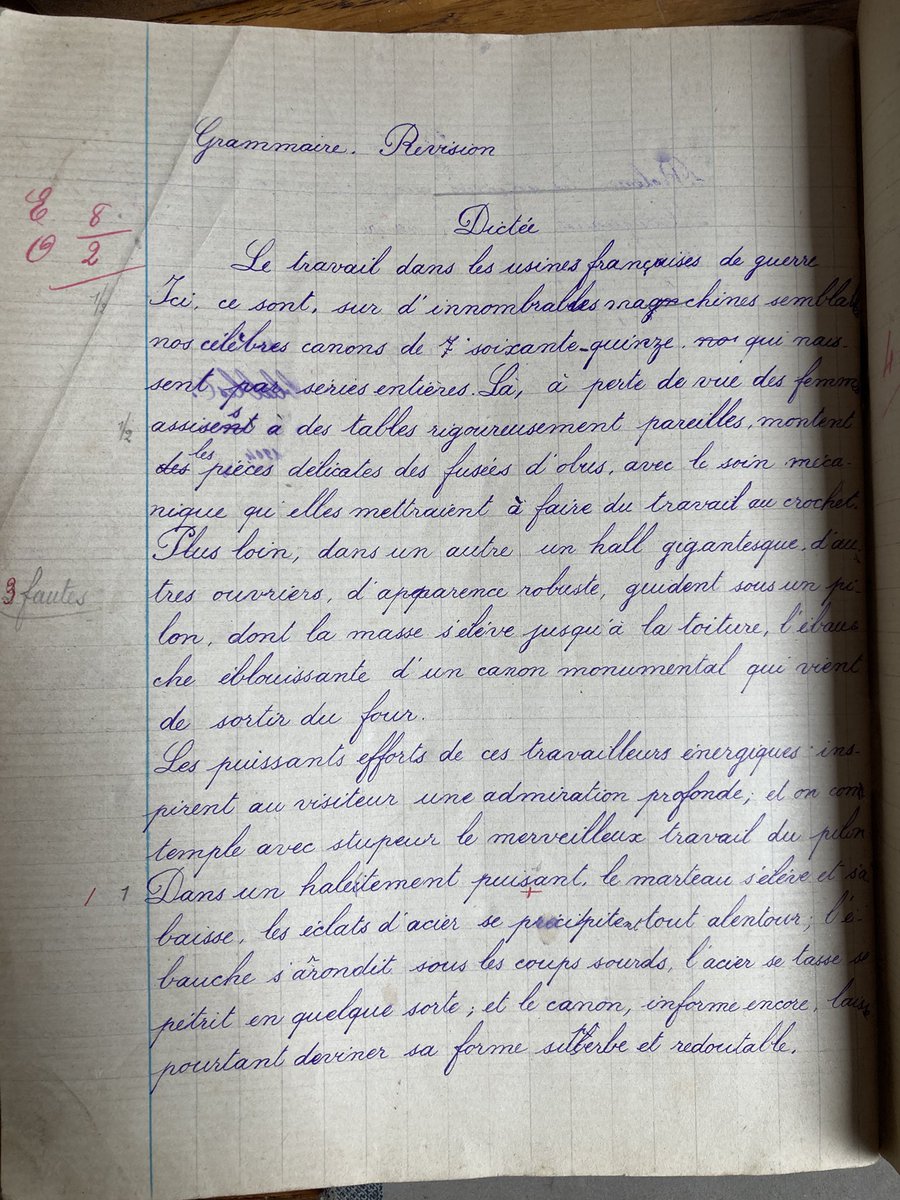 Grammaire. Révision
E 8
O 2
Dictée
Le travail dans les usines françaises de guerre
1/2
Ici, ce sont, sur d'innombrables machines sembla
nos célèbres canons de 7 soixante-quinze. qui nais-
sent pas séries entières. Là, à perte de vue des femm
1/2
assises à des tables rigoureusement pareilles, montent
les pièces délicates des fusées d'obus, avec le soin méca-
nique qu'elles mettraient à faire du travail au crochet.
Plus loin, dans un autre un hall gigantesque, d'au
3 fautes
tres ouvriers, d'apparence robuste, guident sous un pi-
lon, dont la masse s'élève jusqu'à la toiture, l'ébau
che éblouissante d'un canon monumental qui vient
de sortir du four.
Les puissants efforts de ces travailleurs énergiques ins-
pirent au visiteur une admiration profonde; et on con
temple avec stupeur le merveilleux travail du pilon
1 1
Dans un halètement puisant, le marteau s'élève et s'a
baisse, les éclats d'acier se précipitent tout alentour; l'é-
bauche s'arondit sous les coups sourds, l'acier se tasse se
pétrit en quelque sorte; et le canon, informe encore, laisse
pourtant deviner sa forme et redoutable.